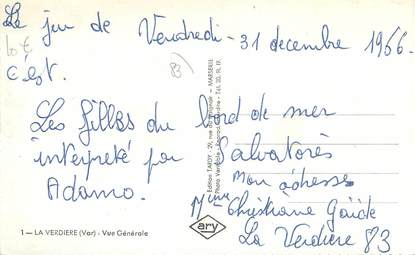 Le jeu de Vendredi - 31 decembre 1966.
C'est.
83
Les filles du bord de mer
interpreté par Salvatorès
Adamo.
mon adresse
Mme Christiane Gaïde
La Verdiere 83
1 — LA VERDIERE (Var) - Vue Générale
ary
Edition TARDY - 29, rue du - MARSEILLE
Photo Véritable -